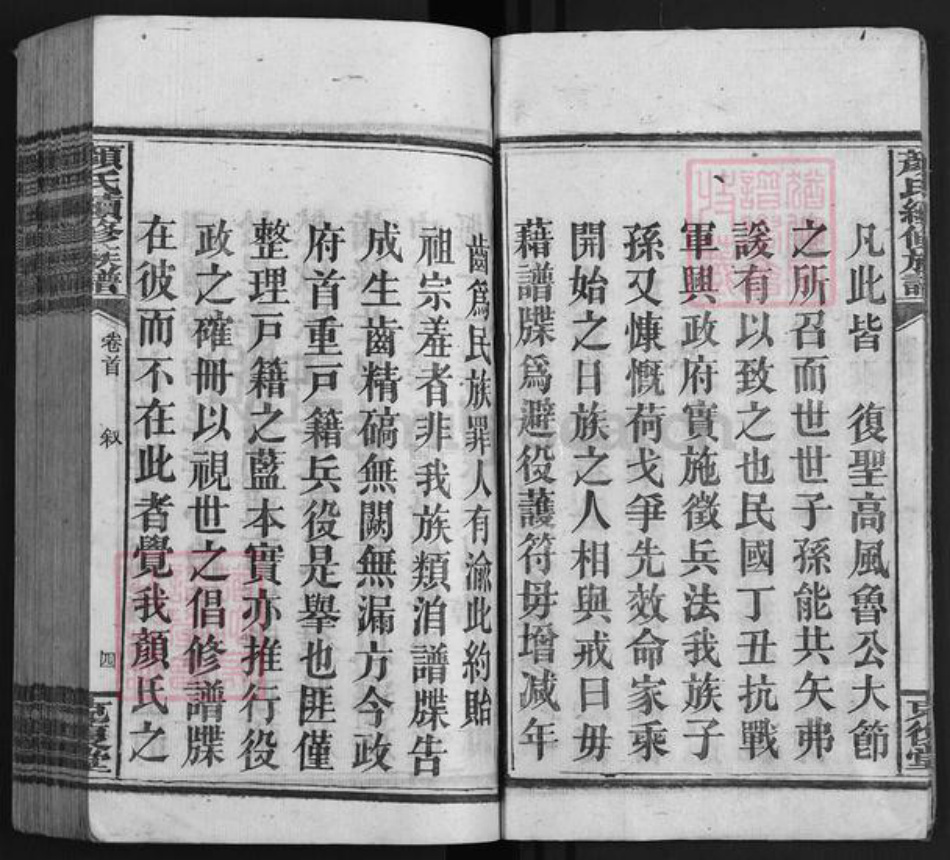 顏氏續修族譜
凡此皆　復聖高風魯公大節
之所召而世世子孫能共矢弗
諼有以致之也民國丁丑抗戰
軍興政府實施徵兵法我族子
孫又慷慨荷戈爭先效命家乘
開始之日族之人相與戒曰毋
藉譜牒為避役護符毋增減年
克復堂
齒爲民族罪人有渝此約貽
祖宗羞者非我族類洎譜牒告
成生齒精碻無闕無漏方今政
府首重戸籍兵役是舉也匪僅
整理戸籍之藍本實亦推行役
政之確冊以視世之倡修譜牒
在彼而不在此者覺我顏氏之
顏氏續修族譜
卷首
叙
四
克復堂